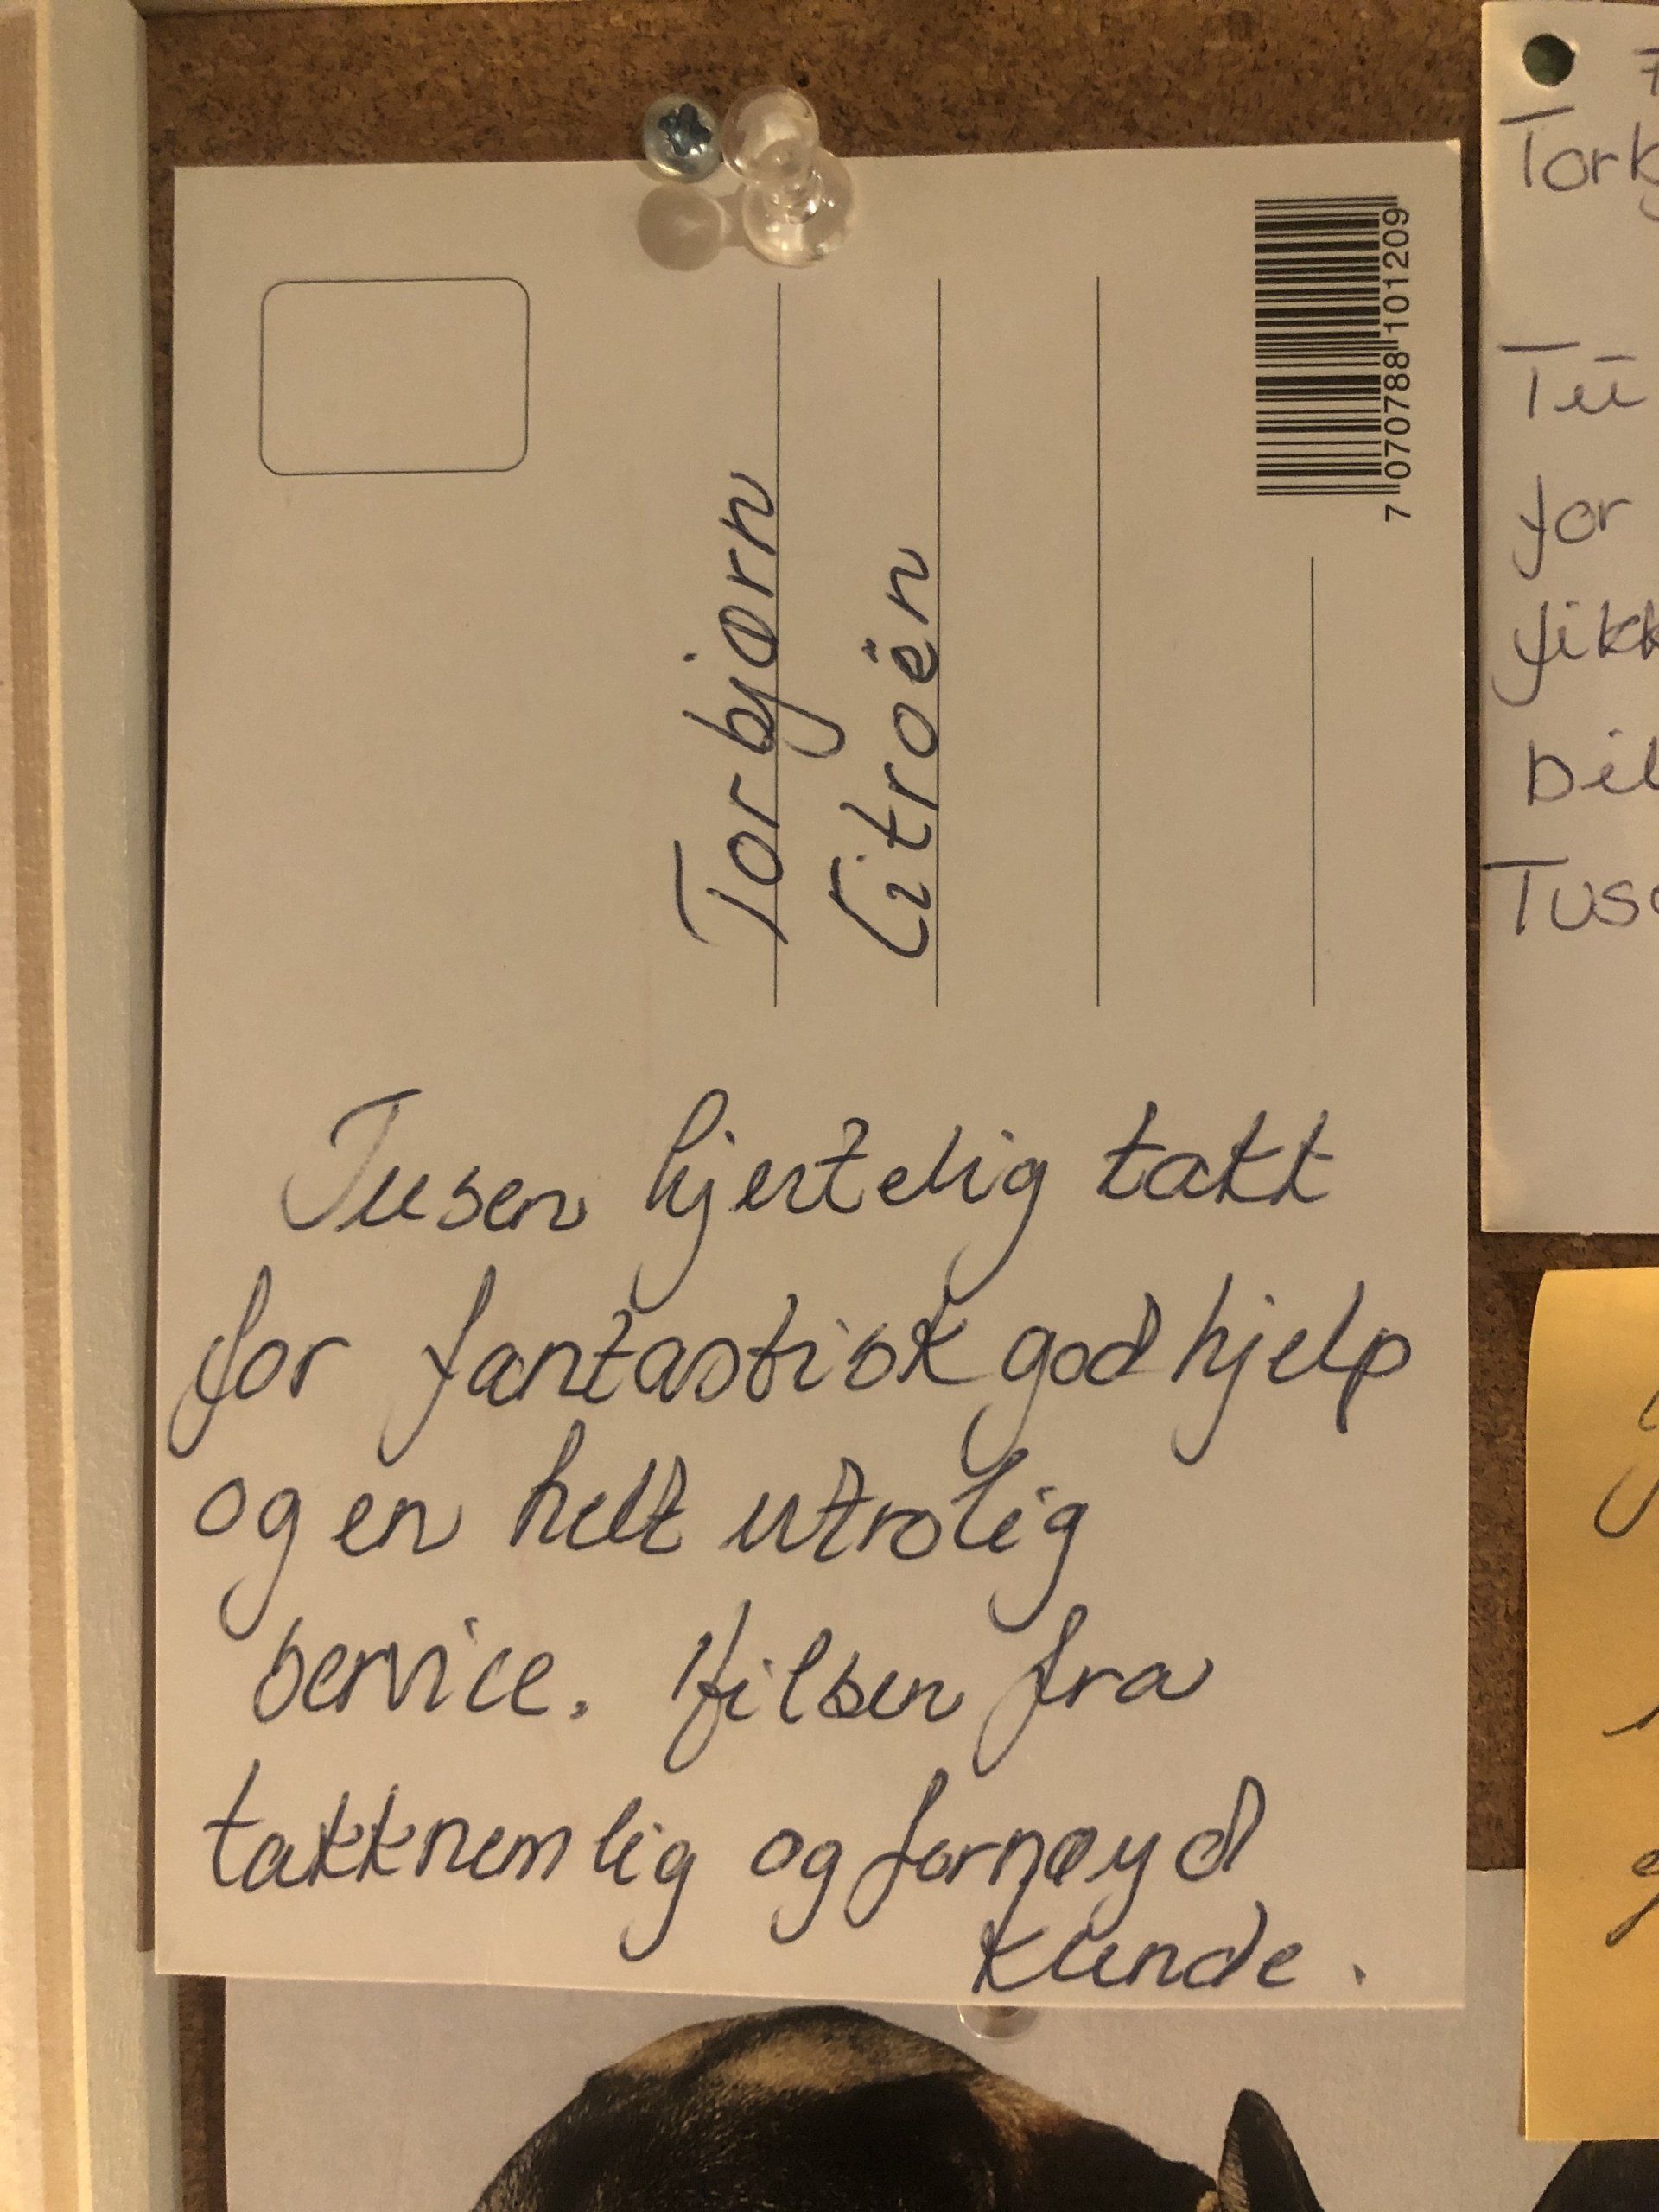 Torbjørn
Citroën
7 070788 101209
Tusen hjertelig takk
for fantastisk god hjelp
og en helt utrolig
service. Hilsen fra
takknemlig og fornøyd
kunde.
for
fikk